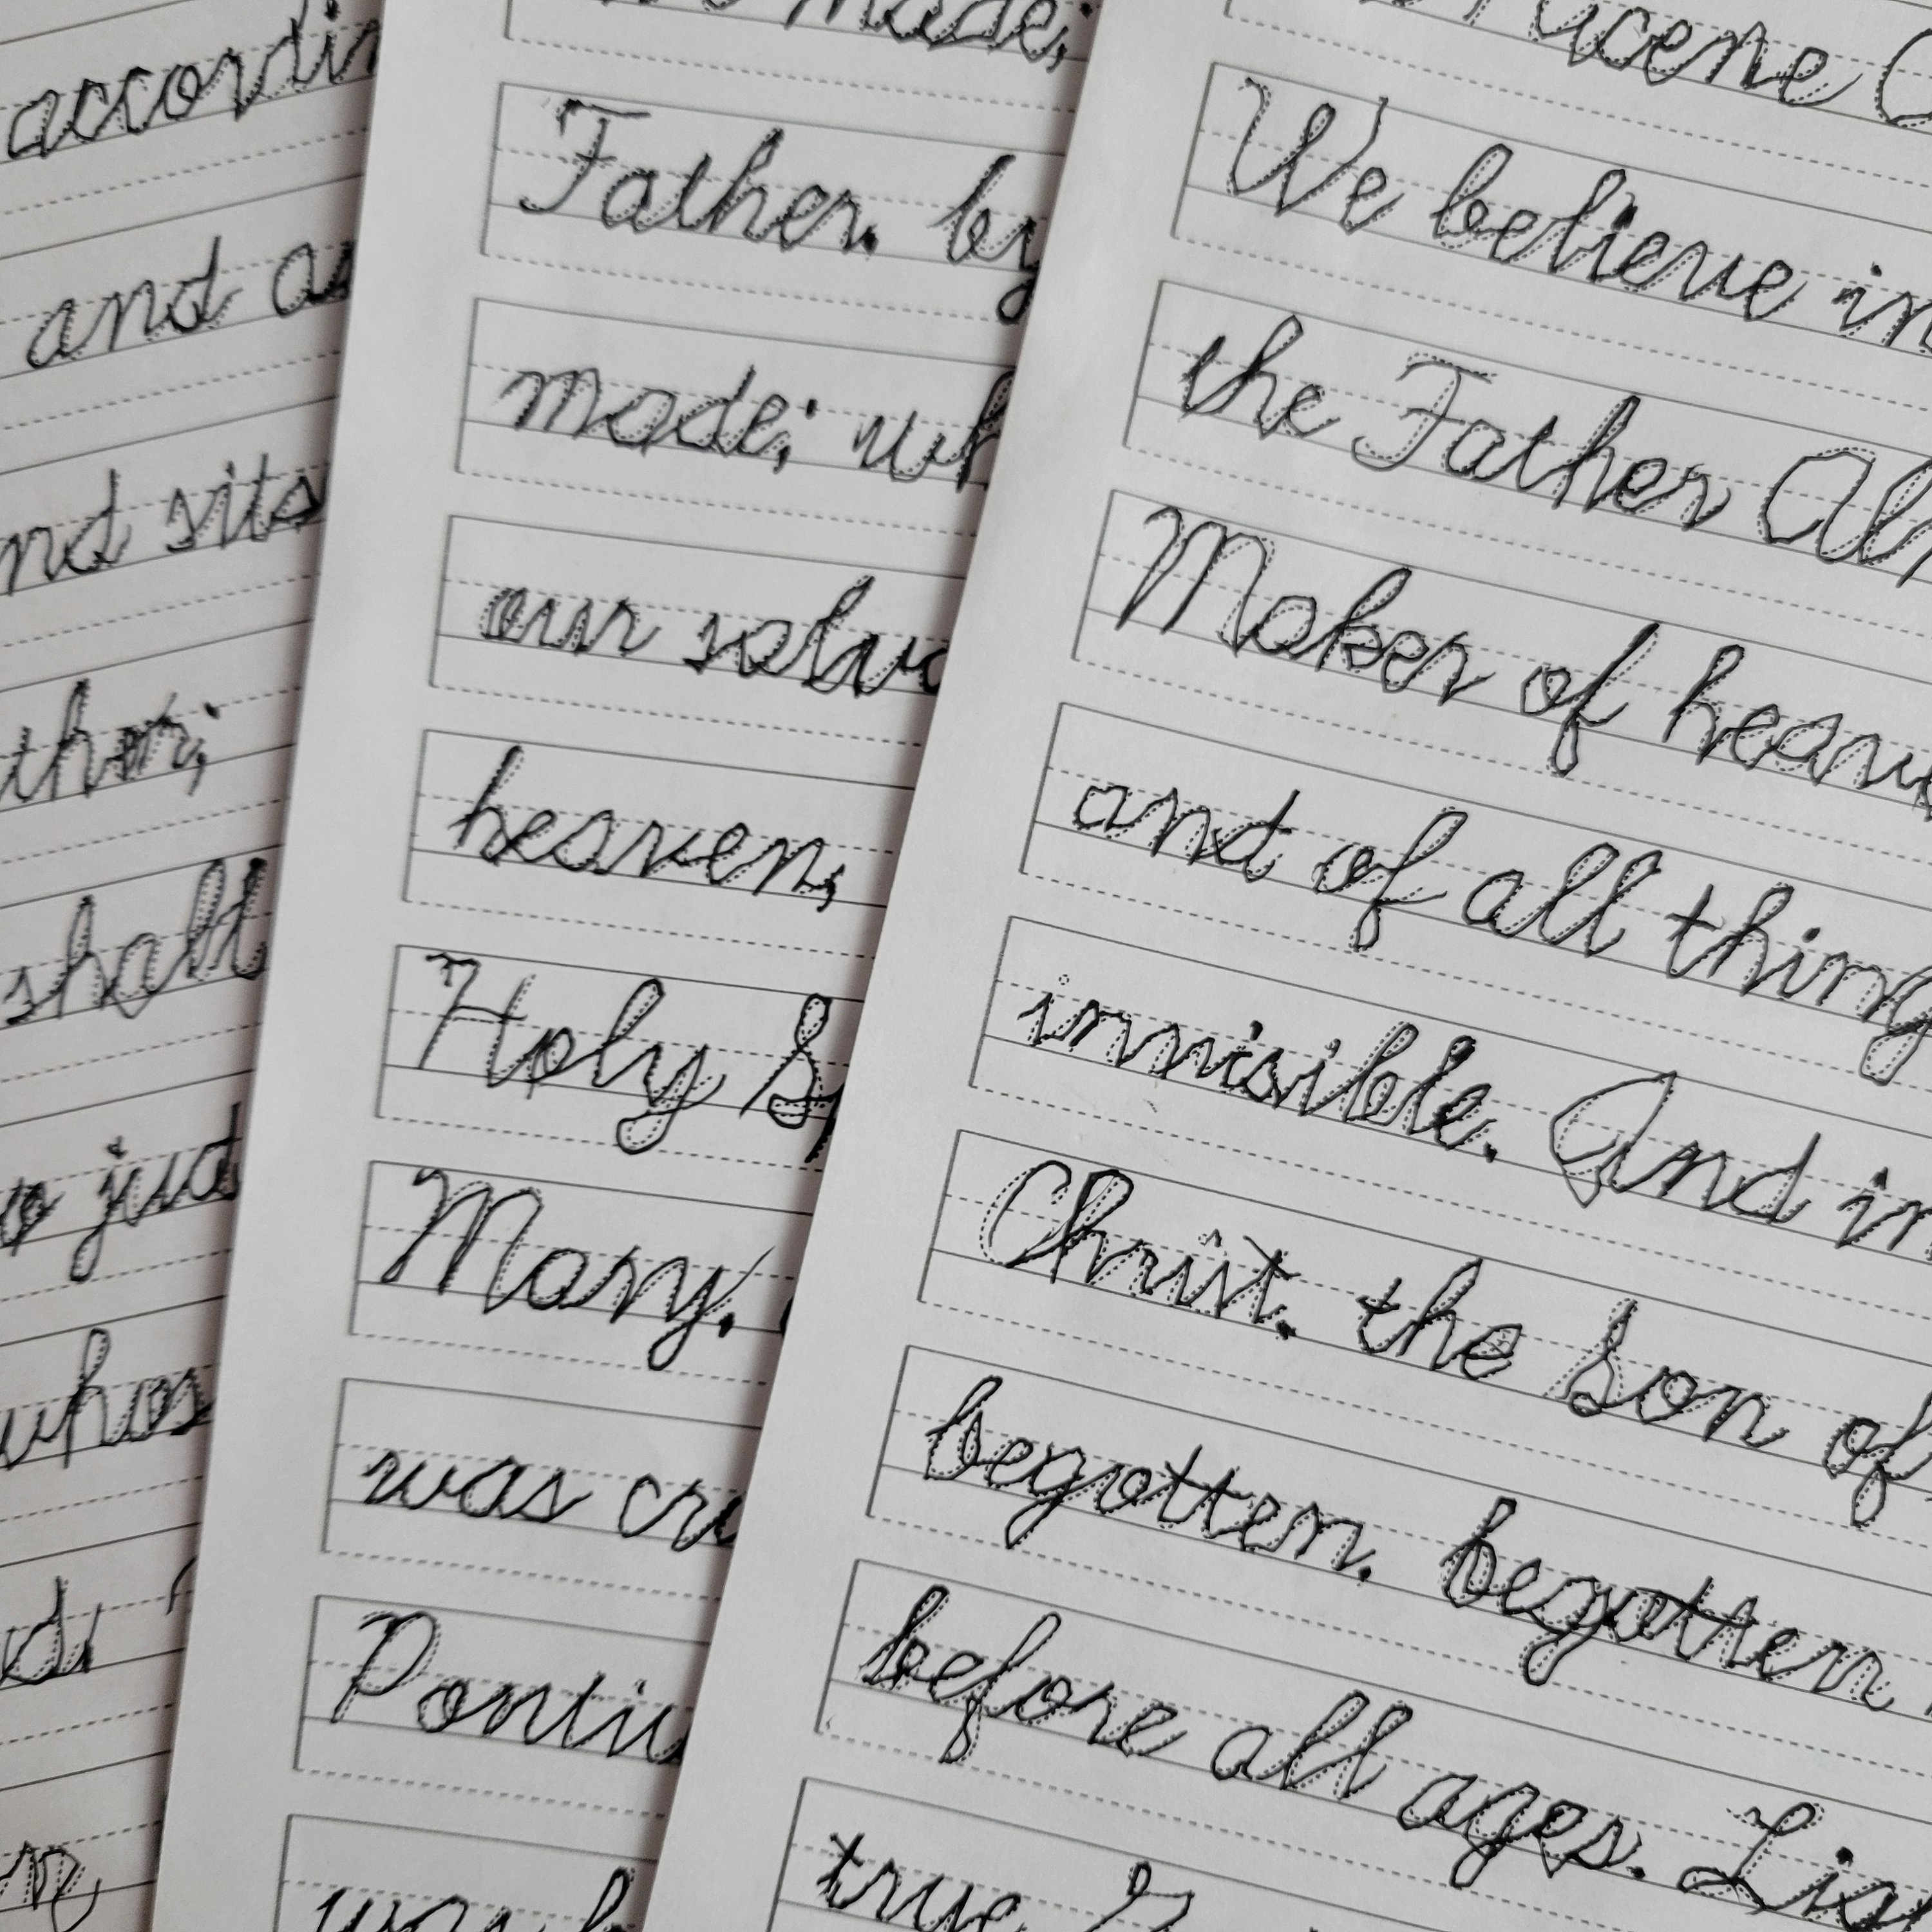 accordin
and as
nd sits
ther;
shall
o jud
whos
d,
made;
Father. by
made; wh
our salva
heaven,
Holy Sp
Mary.
was cru
Pontiu
was b
Nicene C
We believe in
the Father Alm
Maker of heave
and of all thing
invisible. And in
Christ. the Son of
begotten. begotten
before all ages. Lig
true G